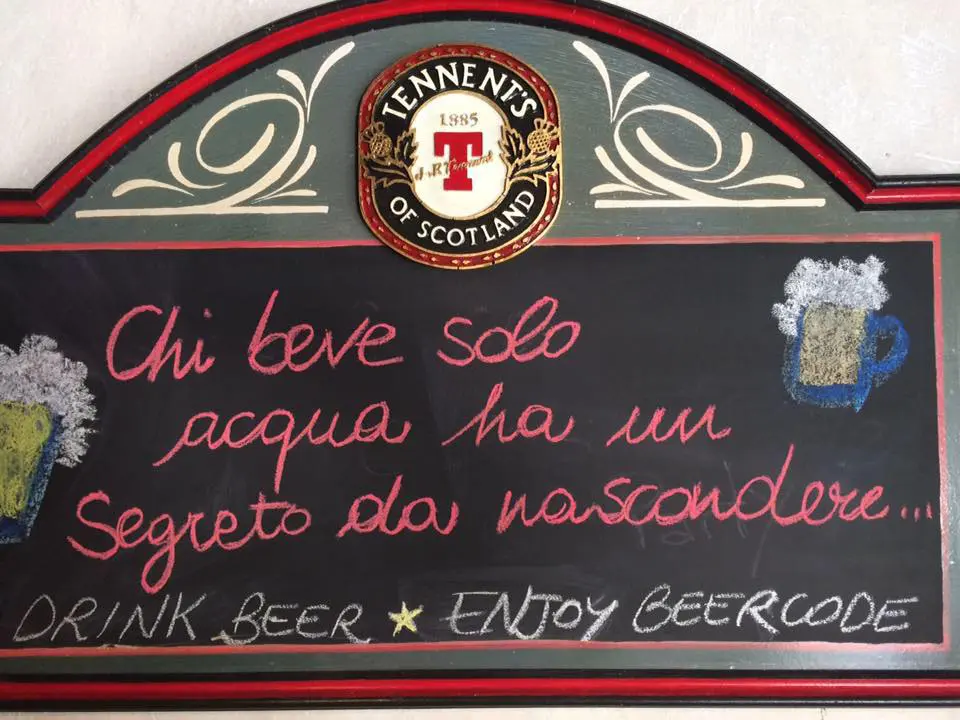 TENNENT'S
1885
T
J.&R. Tennent
OF SCOTLAND
Chi beve solo
acqua ha un
Segreto da nascondere...
DRINK BEER ★ ENJOY BEERCODE